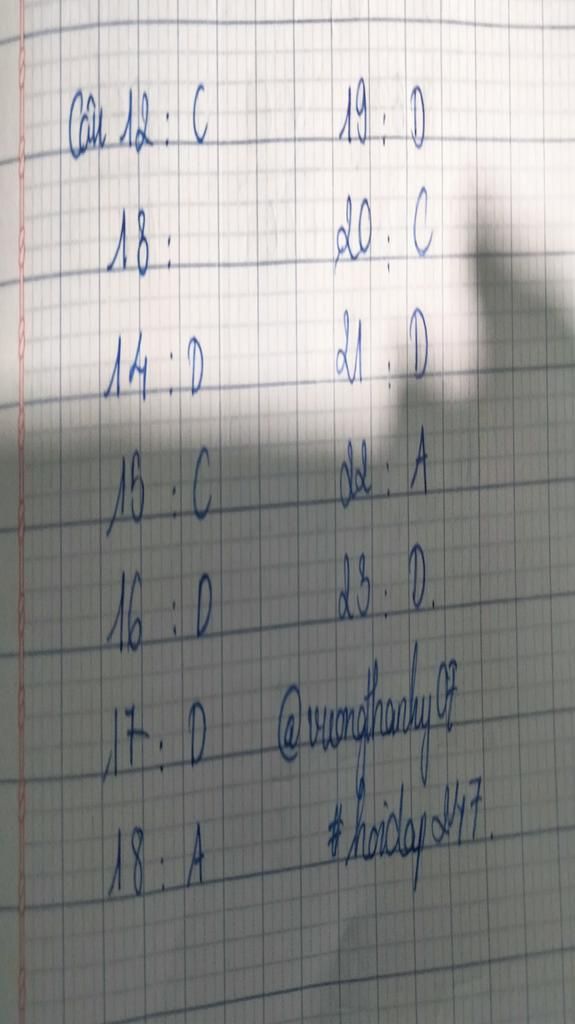 Câu 12: C
13:
14: D
15: C
16: D
17: D
18: A
19: D
20: C
21: D
22: A
23: D.
@vuongthanhy07
#hoidap247.